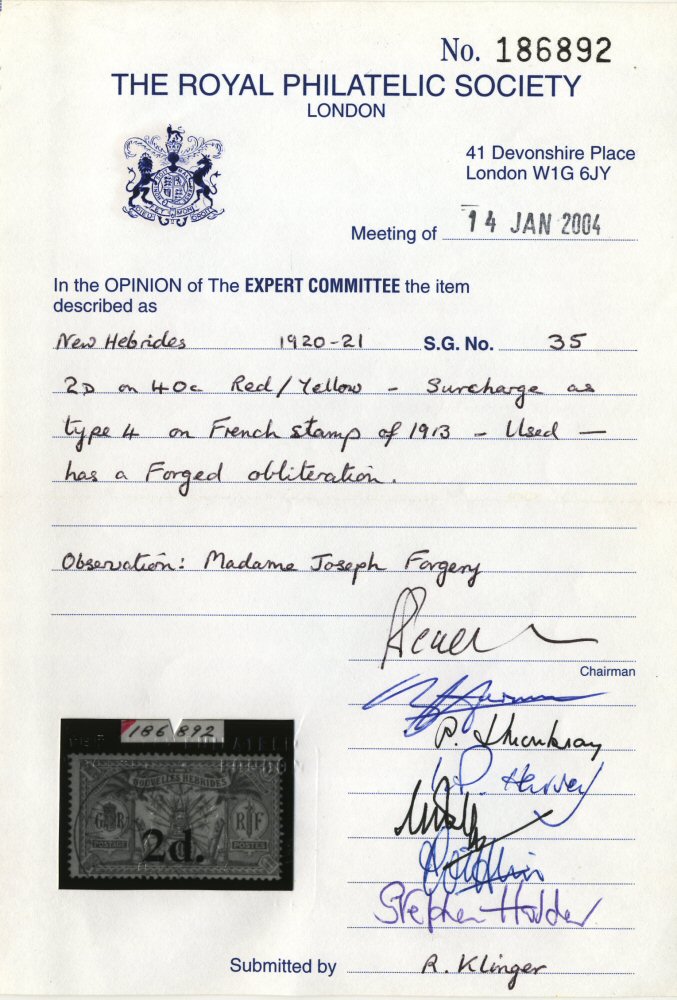 No. 186892
THE ROYAL PHILATELIC SOCIETY
LONDON
41 Devonshire Place
London W1G 6JY
Meeting of 14 JAN 2004
In the OPINION of The EXPERT COMMITTEE the item
described as
New Hebrides 1920-21 S.G. No. 35
2D on 40c Red/Yellow - Surcharge as
type 4 on French stamp of 1913 - Used -
has a Forged obliteration.
Observation: Madame Joseph Forgery
Chairman
P.
P. Harvey
Stephen Holder
186 892
NOUVELLES HEBRIDES
G R
R F
POSTAGE
POSTES
2d.
Submitted by R. Klinger